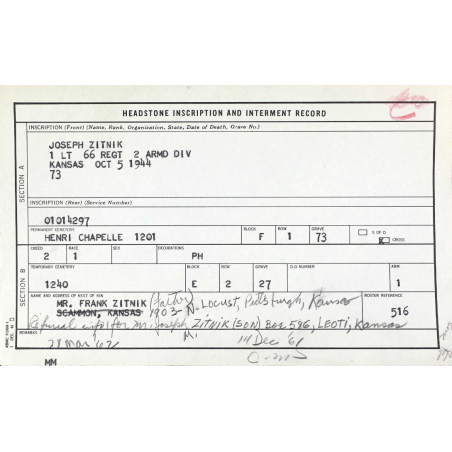 HEADSTONE INSCRIPTION AND INTERMENT RECORD
INSCRIPTION (Front) (Name, Rank, Organization, State, Date of Death, Grave No.)
JOSEPH ZITNIK
1 LT 66 REGT 2 ARMD DIV
KANSAS OCT 5 1944
73
SECTION A
INSCRIPTION (Rear) (Service Number)
01014297
PERMANENT CEMETERY BLOCK ROW GRAVE
HENRI CHAPELLE 1201 F 1 73 S OF D
X CROSS
CREED RACE SEX DECORATIONS
2 1 PH
SECTION B
TEMPORARY CEMETERY BLOCK ROW GRAVE D.O NUMBER ARM
1240 E 2 27 1
NAME AND ADDRESS OF NEXT OF KIN ROSTER REFERENCE
MR. FRANK ZITNIK (Father)
SCAMMON, KANSAS 1903 N. Locust, Pittsburgh, Kansas 516
info for Mr. Joseph ZITNIK (SON) Box 586, LEOTI, Kansas
REMARKS
14 Dec 61
MM